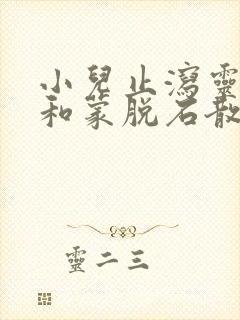 小兒止瀉靈
和蒙脱石散
靈二三